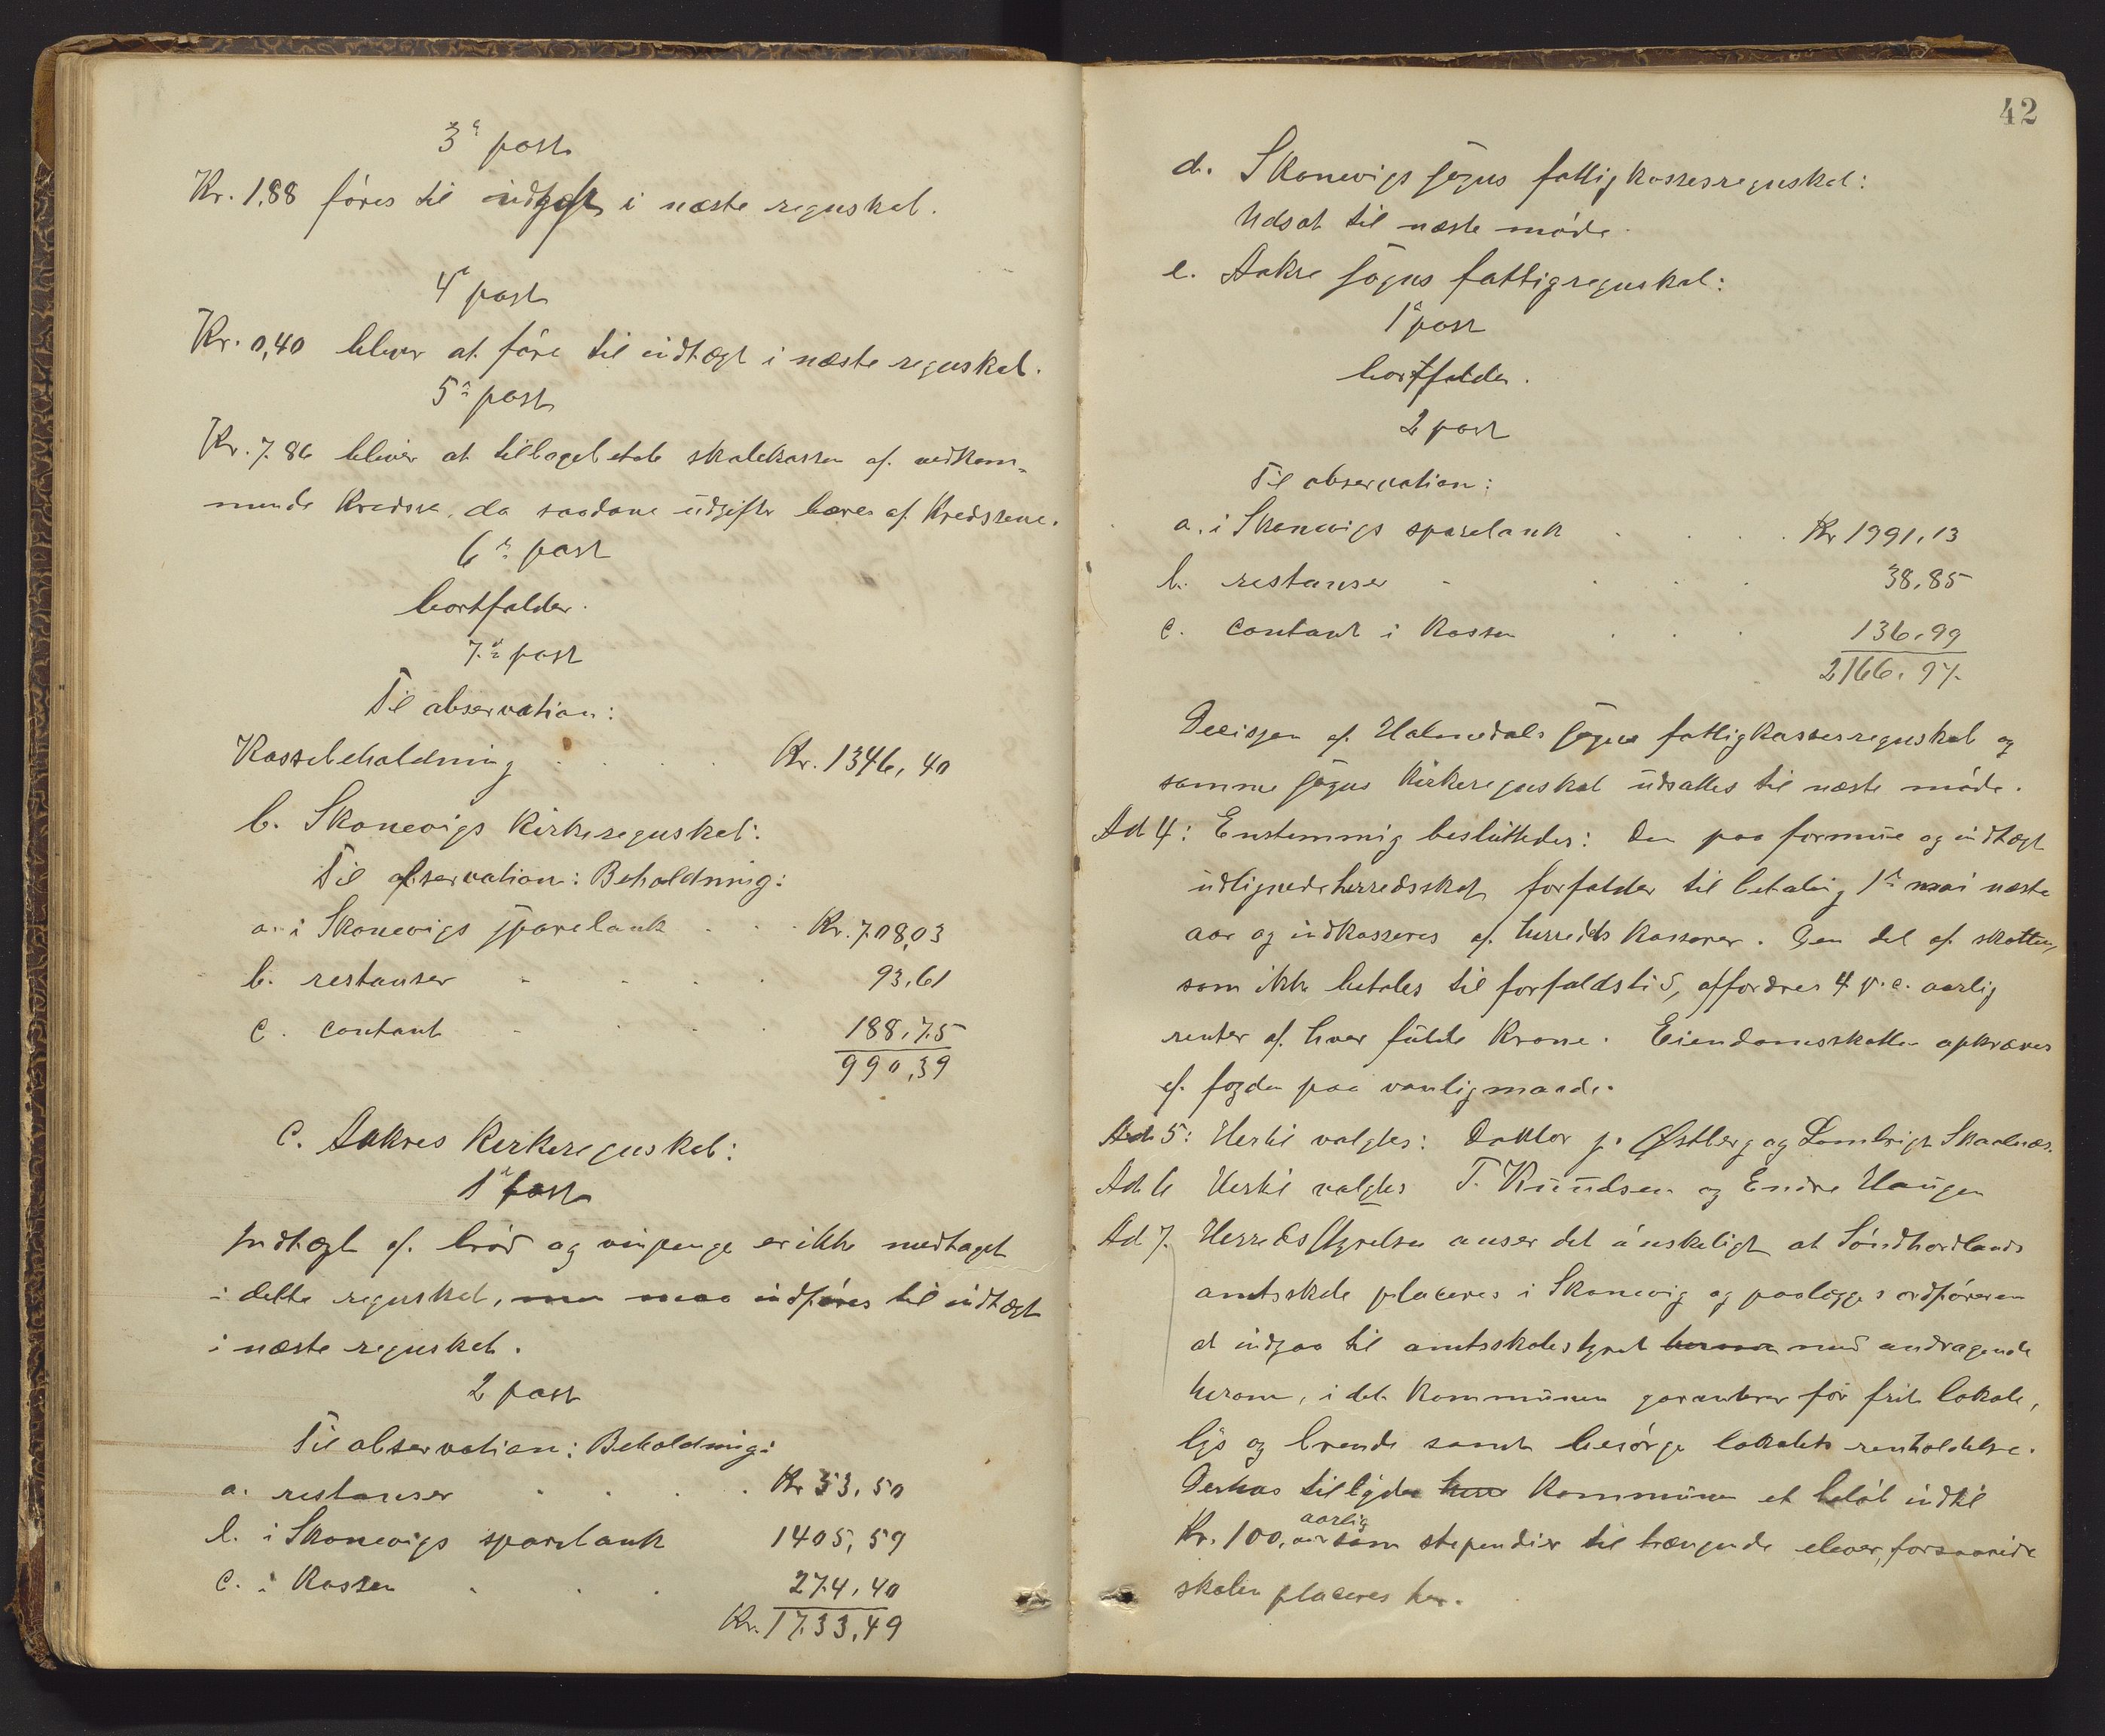 3die post
Kr. 1,88 föres til indtægt i næste regnskab.
4de post
Kr. 0,40 bliver at före til indtægt i næste regnskab.
5te post
Kr. 7.86 bliver at tilbagebetale skolekassen af vedkom-
mende kredse, da saadane udgifter bæres af kredsene.
6te post
bortfalder.
7de post
Til observation:
Kassebeholdning . . . . Kr. 1346,40
b. Skonevigs kirkeregnskab:
Til observation: Beholdning:
a. i Skonevigs sparebank . . . Kr. 708,03
b. restanser . . . . 93,61
c. contant . . . . 188,75
990,39
c. Aakres kirkeregnskab:
1ste post
Indtægt af bröd og vinpenge er ikke medtaget
i dette regnskab, men maa indföres til indtægt
i næste regnskab.
2 post
Til observation: Beholdning:
a. restanser . . . . Kr 53,50
b. i Skonevigs sparebank 1405,59
c. i kassen . . . 274,40
Kr. 1733,49
42
d. Skonevigs sogns fattigkassesregnskab:
Udsat til næste möde.
e. Aakre sogns fattigregnskab:
1ste post
bortfalder.
2 post
Til observation:
a. i Skonevigs sparebank . . . Kr 1991,13
b. restanser . . . 38,85
c. contant i kassen . . . 136,99
2166,97
Decisjon af Holmedals sogns fattigkassesregnskab og
samme sogns kirkeregnskab udsattes til næste möde.
Ad 4: Enstemmig besluttedes: Den paa formue og indtægt
udlignede herredsskat forfalder til betaling 1ste mai næste
aar og indkasseres af herredskasserer. Den del af skatten,
som ikke betales til forfaldstid, affordres 4 p.c. aarlig
renter af hver fulde krone. Eiendomsskatten opkræves
af fogden paa vanlig maade.
Ad 5: Hertil valgtes: Doktor J. Østberg og Lambrigt Skaalnæs.
Ad 6 Hertil valgtes T. Knudsen og Endre Haugen
Ad 7. Herredsstyrelsen anser det önskeligt at Söndhordlands
amtsskole placeres i Skonevig og paalægges ordföreren
at indgaa til amtsskolestyret med andragende
herom, idet kommunen garanterer for frit lokale,
lys og brende samt besörge lokalets renholdelse.
Derhos tilbyder kommunen et belöb indtil
Kr. 100, aarlig som stipendier til trængende elever, forsaavidt
skolen placeres her.